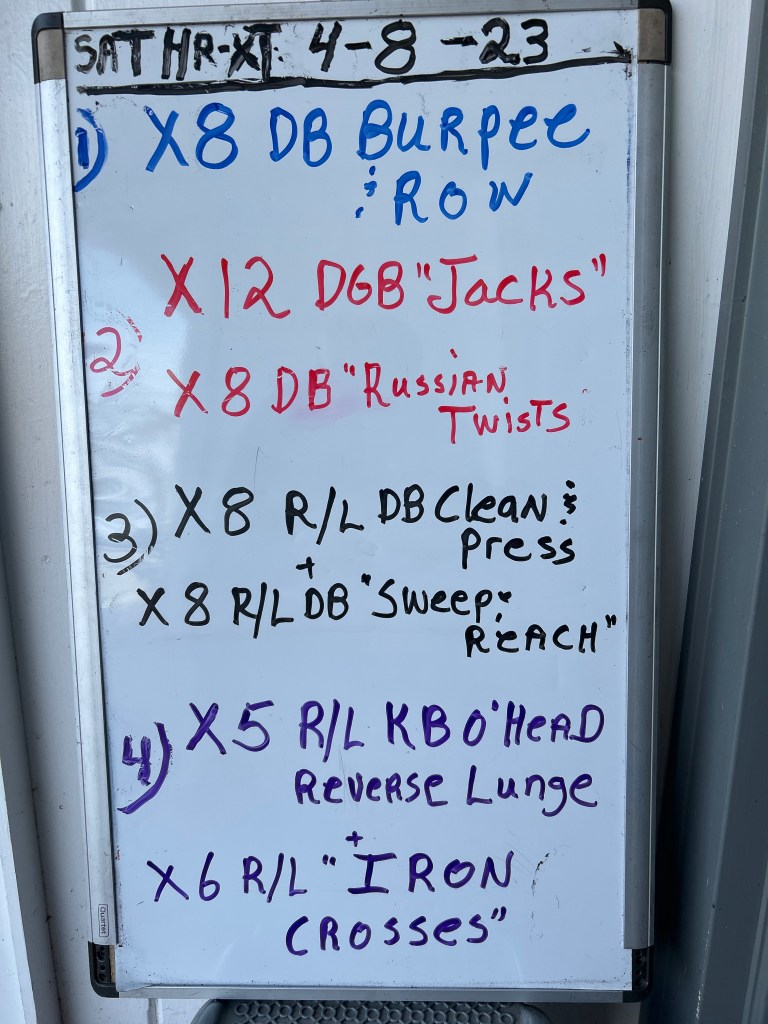 SAT HR-XT. 4-8-23
1) X8 DB BURPEE
& ROW
X12 DGB "JACKS"
2)
X8 DB "RUSSIAN
TWISTS
3) X8 R/L DB Clean &
Press
+
X8 R/L DB "Sweep &
REACH"
4) X5 R/L KB O'HEAD
Reverse Lunge
+
X6 R/L "IRON
CROSSES"
Quartet